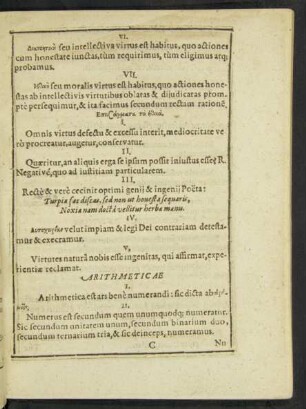 VI.
Διανοητικὴ seu intellectiva virtus est habitus, quo actiones
cum honestate iunctas, tùm requirimus, tùm eligimus atq;
probamus.
VII.
Ἠθικὴ seu moralis virtus est habitus, quo actiones hone-
stas ab intellectivis virtutibus oblatas & dijudicatas prom-
ptè persequimur, & ita facimus secundum rectam rationē.
I.
Omnis virtus defectu & excessu interit, mediocritate ve
rò procreatur, augetur, conservatur.
II.
Quæritur, an aliquis erga se ipsum possit iniustus esse? R.
Negativè, quo ad iustitiam particularem.
III.
Rectè & verè cecinit optimi genij & ingenij Poëta:
Turpia fac discas, sed non ut honesta sequaris,
Noxia nam doctâ vellitur herba manu.
IV.
velut impiam & legi Dei contrariam detesta-
mur & execramur.
V.
Virtutes naturâ nobis esse ingenitas, qui affirmat, expe-
rientiæ reclamat.
ARITHMETICAE
I.
Arithmetica est ars benè numerandi: sic dicta ab
II.
Numerus est secundum quem unumquodq; numeratur.
Sic secundum unitatem unum, secundum binarium duo,
secundum ternarium tria, & sic deinceps, numeramus.
C Nu